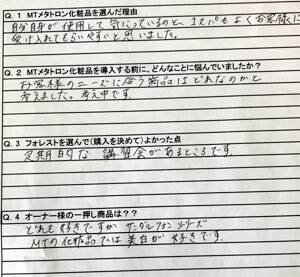 Q. 1 MTメタトロン化粧品を選んだ理由
自分自身が使用して気にっているのと、コスパもよくお客様に
受け入れてもらいやすいと思いました。
Q. 2 MTメタトロン化粧品を導入する前に、どんなことに悩んでいましたか？
お客様のニーズに合う商品はどれなのかと
考えました。考え中です。
Q. 3 フォレストを選んで（購入を決めて）よかった点
定期的な 講習会があるところです。
Q. 4 オーナー様の一押し商品は？？
どれも好きですが サンダルフォン シリーズ
MTの化粧品では美白が好きです。